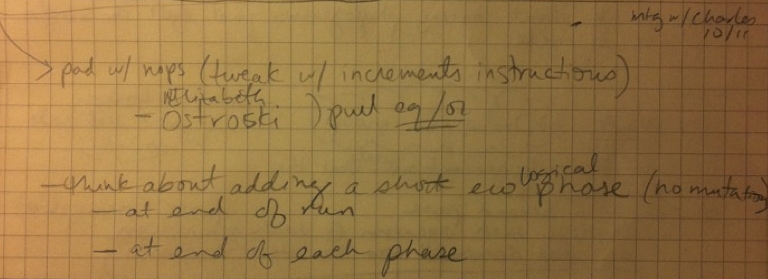 mtg w/ Charles
10/11
> pad w/ nops (tweak w/ increments instructions)
Elizabeth
- Ostroski ) pull eq/or
- think about adding a short ecological phase (no mutation)
- at end of run
- at end of each phase